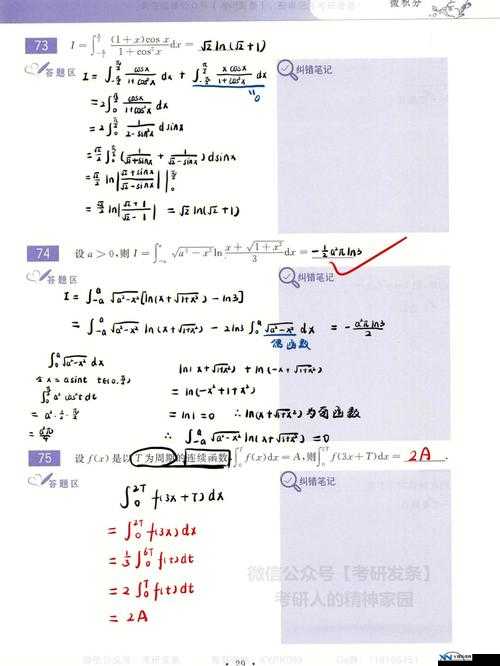 微积分
73 I = ∫_{-π/2}^{π/2} (1+x)cos x / (1+cos²x) dx = √2 ln(√2+1)
答题区
纠错笔记
I = ∫_{-π/2}^{π/2} cosx/(1+cos²x) dx + ∫_{-π/2}^{π/2} xcosx/(1+cos²x) dx
= 2∫_0^{π/2} cosx/(1+cos²x) dx
"0
= 2∫_0^{π/2} 1/(2-sin²x) dsinx
= √2/2 ∫_0^{π/2} (1/(√2+sinx) + 1/(√2-sinx)) dsinx
= √2/2 ln|(√2+sinx)/(√2-sinx)| |_0^{π/2}
= √2/2 ln|(√2+1)/(√2-1)| = √2 ln(√2+1)
74 设 a>0,则 I = ∫_{-a}^{a} √(a²-x²) ln (x+√(1+x²))/3 dx = -1/2 a²π ln3
答题区
纠错笔记
I = ∫_{-a}^{a} √(a²-x²) [ln(x+√(1+x²)) - ln3]
= ∫_{-a}^{a} √(a²-x²) ln(x+√(1+x²)) - 2ln3 ∫_0^a √(a²-x²) dx = -a²π ln3/2
偶函数
∫_0^a √(a²-x²) dx
令 x = asint t∈(0,π/2)
∫_0^{π/2} a² cos²t dt
= a²·1/2·π/2
= a²π/4
ln(x+√(1+x²)) + ln(-x+√(1+x²))
= ln(-x²+1+x²)
= ln1 = 0 ∴ ln(x+√(1+x²))为奇函数
∴ ∫_{-a}^{a} √(a²-x²) ln(x+√(1+x²)) = 0
75 设 f(x)是以 T 为周期的连续函数,∫_0^T f(x)dx = A,则∫_0^{2T} f(3x+T)dx = 2A.
答题区
纠错笔记
∫_0^{2T} f(3x+T)dx
= ∫_0^{2T} f(3x)dx
= 1/3 ∫_0^{6T} f(t)dt
= 2∫_0^T f(t)dt
= 2A
微信公众号【考研发条】
考研人的精神家园
· 29 ·